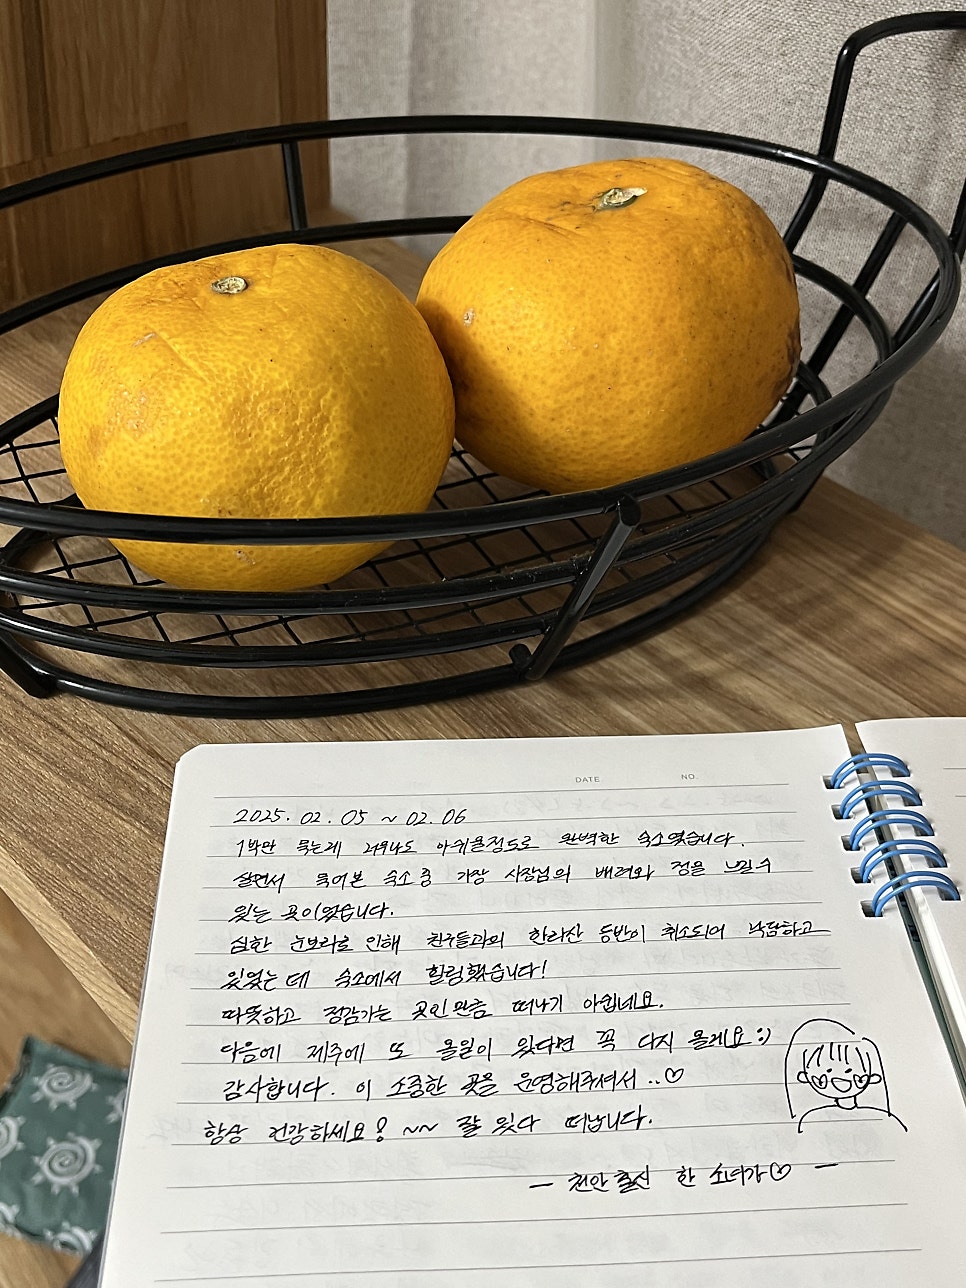 DATE NO.
2025. 02. 05 ~ 02. 06
1박만 묵는게 너무나도 아쉬울정도로 완벽한 숙소였습니다.
살면서 묵어본 숙소 중 가장 사장님의 배려와 정을 느낄 수
있는 곳이었습니다.
심한 눈보라로 인해 친구들과의 한라산 등반이 취소되어 낙담하고
있었는데 숙소에서 힐링했습니다!
따뜻하고 정감가는 곳인만큼 떠나기 아쉽네요.
다음에 제주에 또 올일이 있다면 꼭 다시 올게요 :)
감사합니다. 이 소중한 곳을 운영해주셔서..♡
항상 건강하세요! ~~ 잘 있다 떠납니다.
— 천안 출신 한 소녀가♡ —